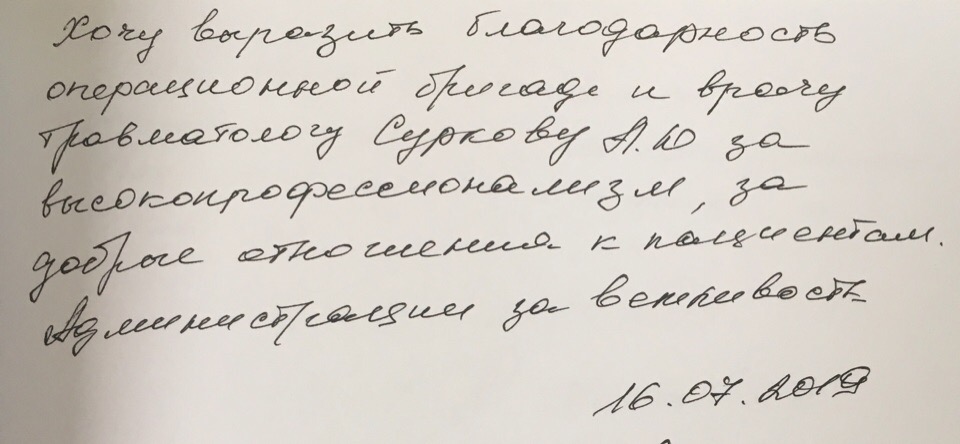 Хочу выразить благодарность
операционной бригаде и врачу
травматологу Суркову А.Ю за
высокопрофессионализм, за
добрые отношения к пациентам.
Администрации за вежливость
16.07.2019